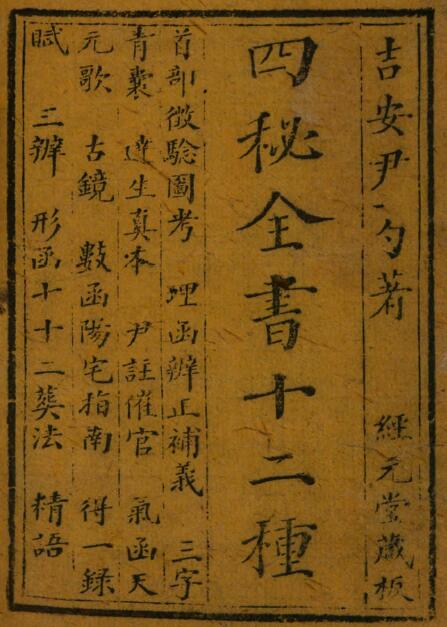 吉安尹一勺著　經元堂藏板
四秘全書十二種
首部徵驗圖考　理函辨正補義　三字
青囊　達生真本　尹註催官　氣函天
元歌　古鏡　數函陽宅指南　得一録
賦　三辨　形函十十二葬法　精語